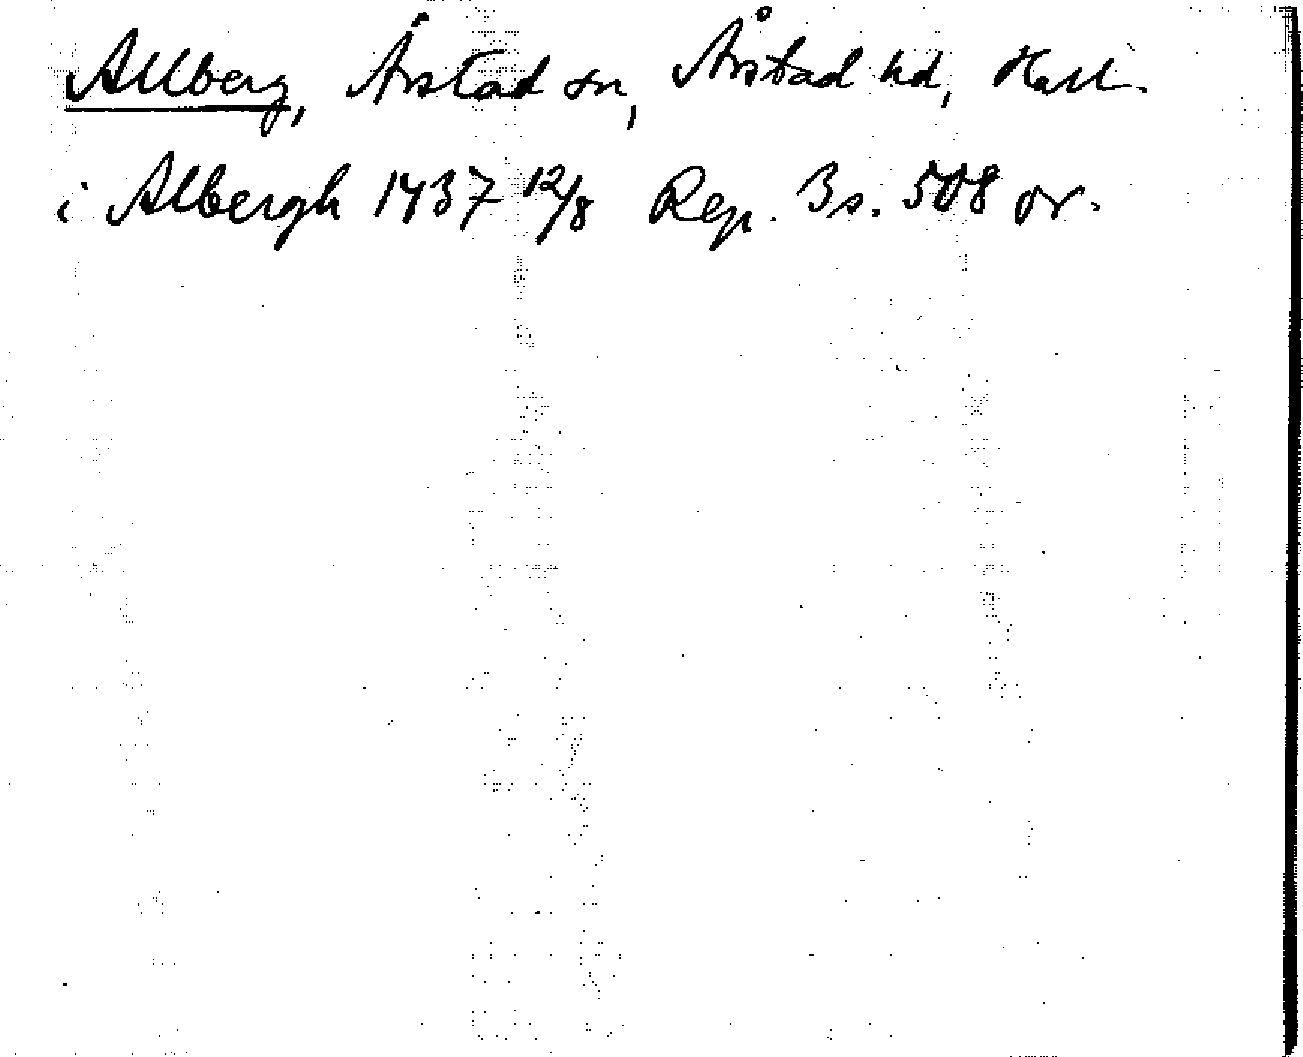 Allberg, Årstad sn, Årstad hd, Hall.
i Albergh 1437 12/8 Rep. 3 s. 508 or.